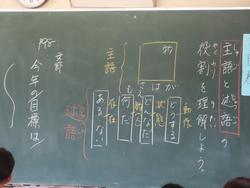 主語と述語の
役割を理解しよう。
主語
が
は
も
どうする
動作
どんなだ
状態
何だ
ある・ない
存在
述語
今年の目標は